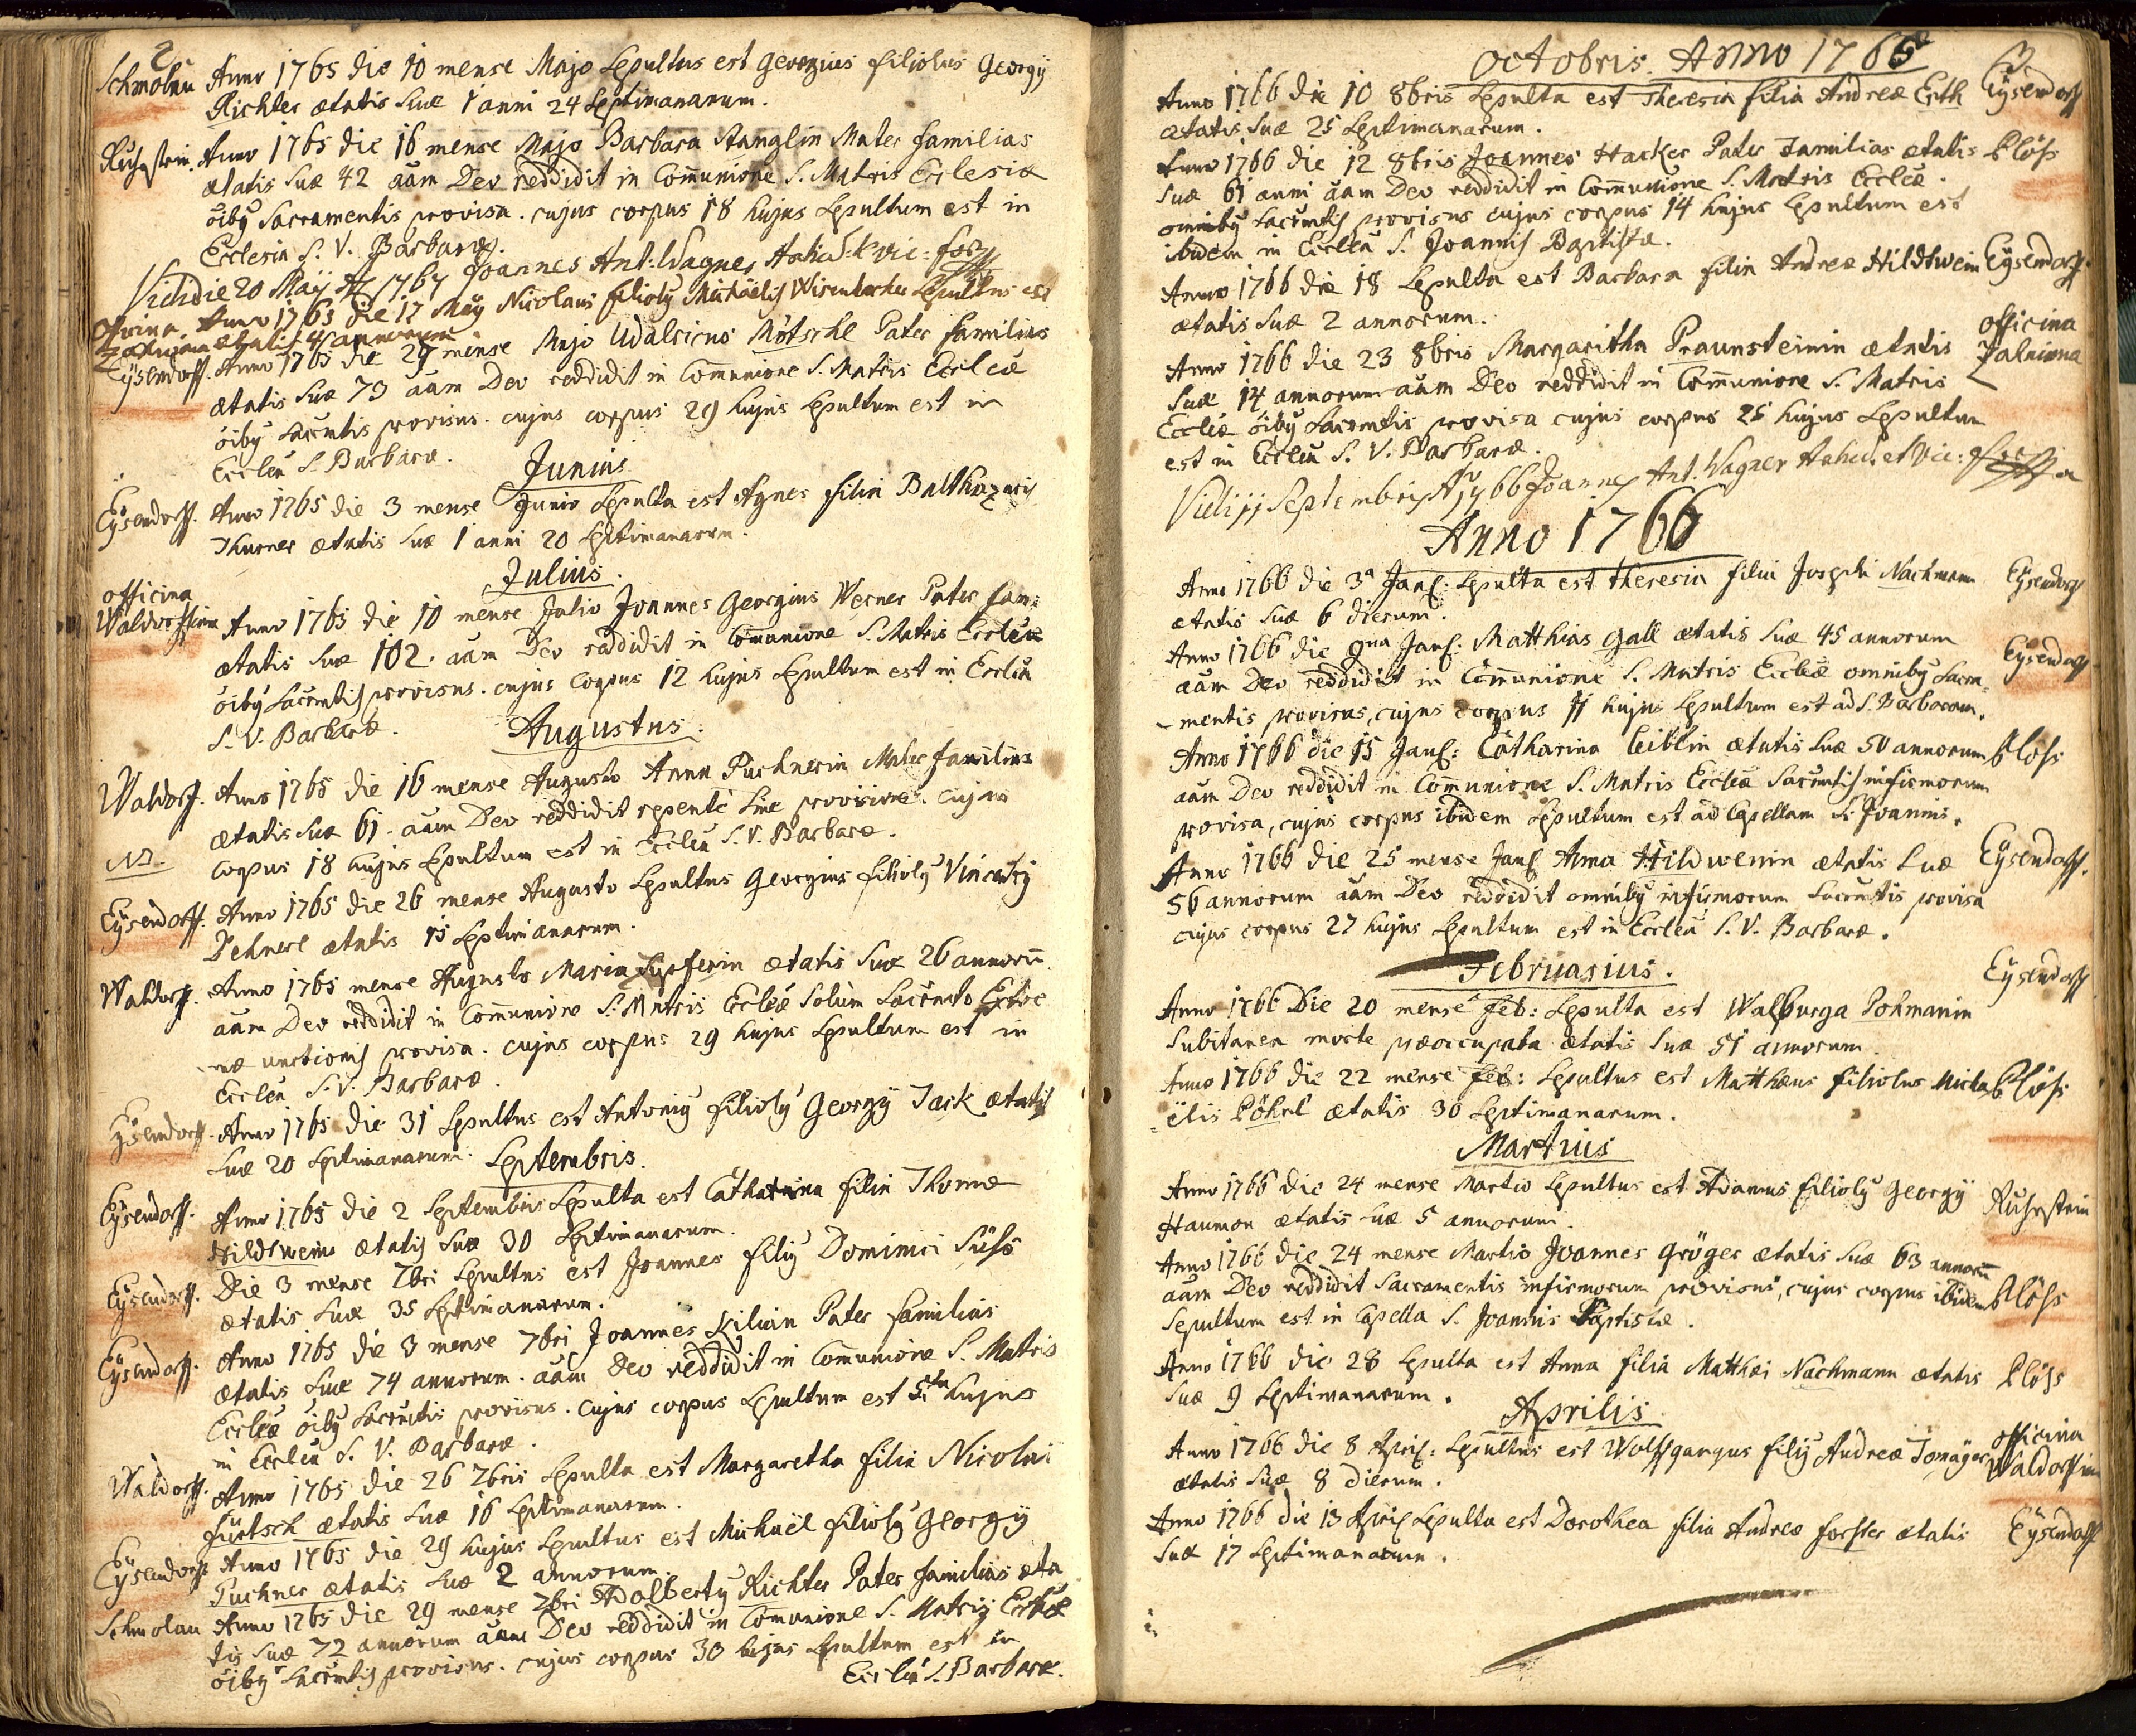 2
Schmolau Anno 1765 die 10 mense Majo Sepultus est Georgius filiolus Georgÿ
Richter ætatis suæ 1 anni 24 septimanarum.
Ruhrstein. Anno 1765 die 16 mense Majo Barbara Stanglin Mater familias
ætatis suæ 42 aãm Deo reddidit in Comunione S. Matris Ecclesiæ
oiby Sacramentis provisa. cujus corpus 18 hujus Sepultum est in
Ecclesia S. V. Barbaræ.
Vidi die 20 Maÿ Aō 1767 Joannes Ant: Wagner
officina Anno 1765 die 17 Maÿ Nicolaus filioly Michaëlis Wisenbacher Sepultus est
Zahniana ætatis 4 annorum
Eÿsendorff. Anno 1765 die 27 mense Majo Udalricus Mötschl Pater familias
ætatis suæ 73 aãm Deo reddidit in Comunione S. Matris Eccleæ
oiby sacrmtis provisus. cujus corpus 29 hujus Sepultum est in
Ecclea S. Barbaræ.
Junius
Eÿsendorff. Anno 1765 die 3 mense Junio Sepulta est Agnes filia Balthazaris
Thurner ætatis suæ 1 anni 20 septimanarum.
Julius.
officina
Waldorffiana Anno 1765 die 10 mense Julio Joannes Georgius Werner Pater fam:
ætatis suæ 102. aãm Deo reddidit in Comunione S. Matris Eccleæ
oiby Sacrmtis provisus. cujus corpus 12 hujus Sepultum est in Ecclea
S. V. Barbaræ.
Augustus.
Waldorff. Anno 1765 die 16 mense Augusto Anna Puchnerin Mater familias
ætatis suæ 61. aãm Deo reddidit repentè sine provisione. cujus
NB. corpus 18 hujus Sepultum est in Ecclea S. V. Barbaræ.
Eÿsendorff. Anno 1765 die 26 mense Augusto Sepultus Georgius filioly Vincentÿ
Dehnerl ætatis 15 Septimanarum.
Waldorff. Anno 1765 mense Augusto Maria Zipferin ætatis suæ 26 annorū
aãm Deo reddidit in Comunione S. Matris Eccleæ solùm Sacrmto Extre
mæ unctionis provisa. cujus corpus 29 hujus Sepultum est in
Ecclea S. V. Barbaræ.
Eÿsendorff. Anno 1765 die 31 Sepultus est Antoniy filioly Georgÿ Jack ætatis
suæ 20 Septimanarum.
Septembris.
Eÿsendorff. Anno 1765 die 2 Septembris Sepulta est Catharina filia Thomæ
Hildtwein ætatis suæ 30 Septimanarum.
Eÿsendorff. Die 3 mense 7bri Sepultus est Joannes filiy Dominici Süss
ætatis suæ 35 Septimanarum.
Eÿsendorff. Anno 1765 die 3 mense 7bri Joannes Kilian Pater familias
ætatis suæ 74 annorum. aãm Deo reddidit in Comunione S. Matris
Eccleæ oiby Sacrmtis provisus. cujus corpus Sepultum est 5ta hujus
in Ecclea S. V. Barbaræ.
Waldorff. Anno 1765 die 26 7bris Sepulta est Margaretha filia Nicolai
Fürtsch ætatis suæ 16 Septimanarum.
Eÿsendorff Anno 1765 die 29 hujus Sepultus est Michaël filioly Georgÿ
Puchner ætatis suæ 2 annorum.
Schmolau Anno 1765 die 29 mense 7bri Adalberty Richter Pater familias æta
tis suæ 72 annorum aãm Deo reddidit in Comunione S. Matris Eccleæ
oiby Sacrmtis provisus. cujus corpus 30 hujus Sepultum est in
Ecclea S. Barbaræ.
3
Octobris. Anno 1765
Anno 1766 die 10 8bris Sepulta est Theresia filia Andreæ Erth Eÿsendorff
ætatis suæ 25 Septimanarum.
Anno 1766 die 12 8bris Joannes Hacker Pater Familias ætatis Plöss
suæ 61 anni aãm Deo reddidit in Comunione S. Matris Eccleæ.
omniby Sacrmtis provisus cujus corpus 14 hujus Sepultum est
ibidem in Ecclea S. Joannis Baptistæ.
Anno 1766 die 18 Sepulta est Barbara filia Andreæ Hildtwein Eÿsendorff.
ætatis suæ 2 annorum.
Anno 1766 die 23 8bris Margaritha Praunsteinin ætatis officina
Zahniana
suæ 14 annorum aãm Deo reddidit in Comunione S. Matris
Eccleæ oiby Sacrmtis provisa cujus corpus 25 hujus Sepultum
est in Ecclea S. V. Barbaræ.
Vidi 11 Septembris Aō 1766 Joannes Ant. Wagner
Anno 1766
Anno 1766 die 3a Jan: Sepulta est Theresia filia Josephi Nachmann Eÿsendorff
ætatis suæ 6 dierum.
Anno 1766 die 9na Jan: Matthias Gall ætatis suæ 45 annorum Eÿsendorff
aãm Deo reddidit in Comunione S. Matris Eccleæ omniby Sacra-
mentis provisus, cujus corpus 11 hujus Sepultum est ad S. Barbaram.
Anno 1766 die 15 Jan: Catharina Leiblin ætatis suæ 50 annorum Plöss
aãm Deo reddidit in Comunione S. Matris Eccleæ Sacrmtis infirmorum
provisa, cujus corpus ibidem Sepultum est ad Capellam S. Joannis.
Anno 1766 die 25 mense Jan Anna Hildwenin ætatis suæ Eÿsendorff.
56 annorum aãm Deo reddidit omniby infirmorum Sacrmtis provisa
cujus corpus 27 hujus Sepultum est in Ecclea S. V. Barbaræ.
Februarius.
Eÿsendorff
Anno 1766 Die 20 mense feb: Sepulta est Walburga Pohmanin
Subitanea morte præoccupata ætatis suæ 51 annorum.
Anno 1766 die 22 mense feb: Sepultus est Matthæus filiolus Micha Plöss
ëlis Pöhnl ætatis 30 Septimanarum.
Martius
Anno 1766 die 24 mense Martio Sepultus est Adamus filioly Georgÿ Ruhrstein
Haumon ætatis suæ 5 annorum.
Anno 1766 die 24 mense Martio Joannes Gröger ætatis suæ 63 annorū
aãm Deo reddidit Sacramentis infirmorum provisus, cujus corpus ibidem Plöss
Sepultum est in Capella S. Joannis Baptistæ.
Anno 1766 die 28 Sepulta est Anna filia Matthæi Nachmann ætatis Plöss
suæ 9 Septimanarum.
Aprilis
Anno 1766 die 8 April: Sepultus est Wolffgangus filiy Andreæ Tomaÿer officina
Waldorffiana
ætatis suæ 8 dierum.
Anno 1766 die 13 April Sepulta est Dorothea filia Andreæ forster ætatis Eÿsendorff
suæ 17 Septimanarum.